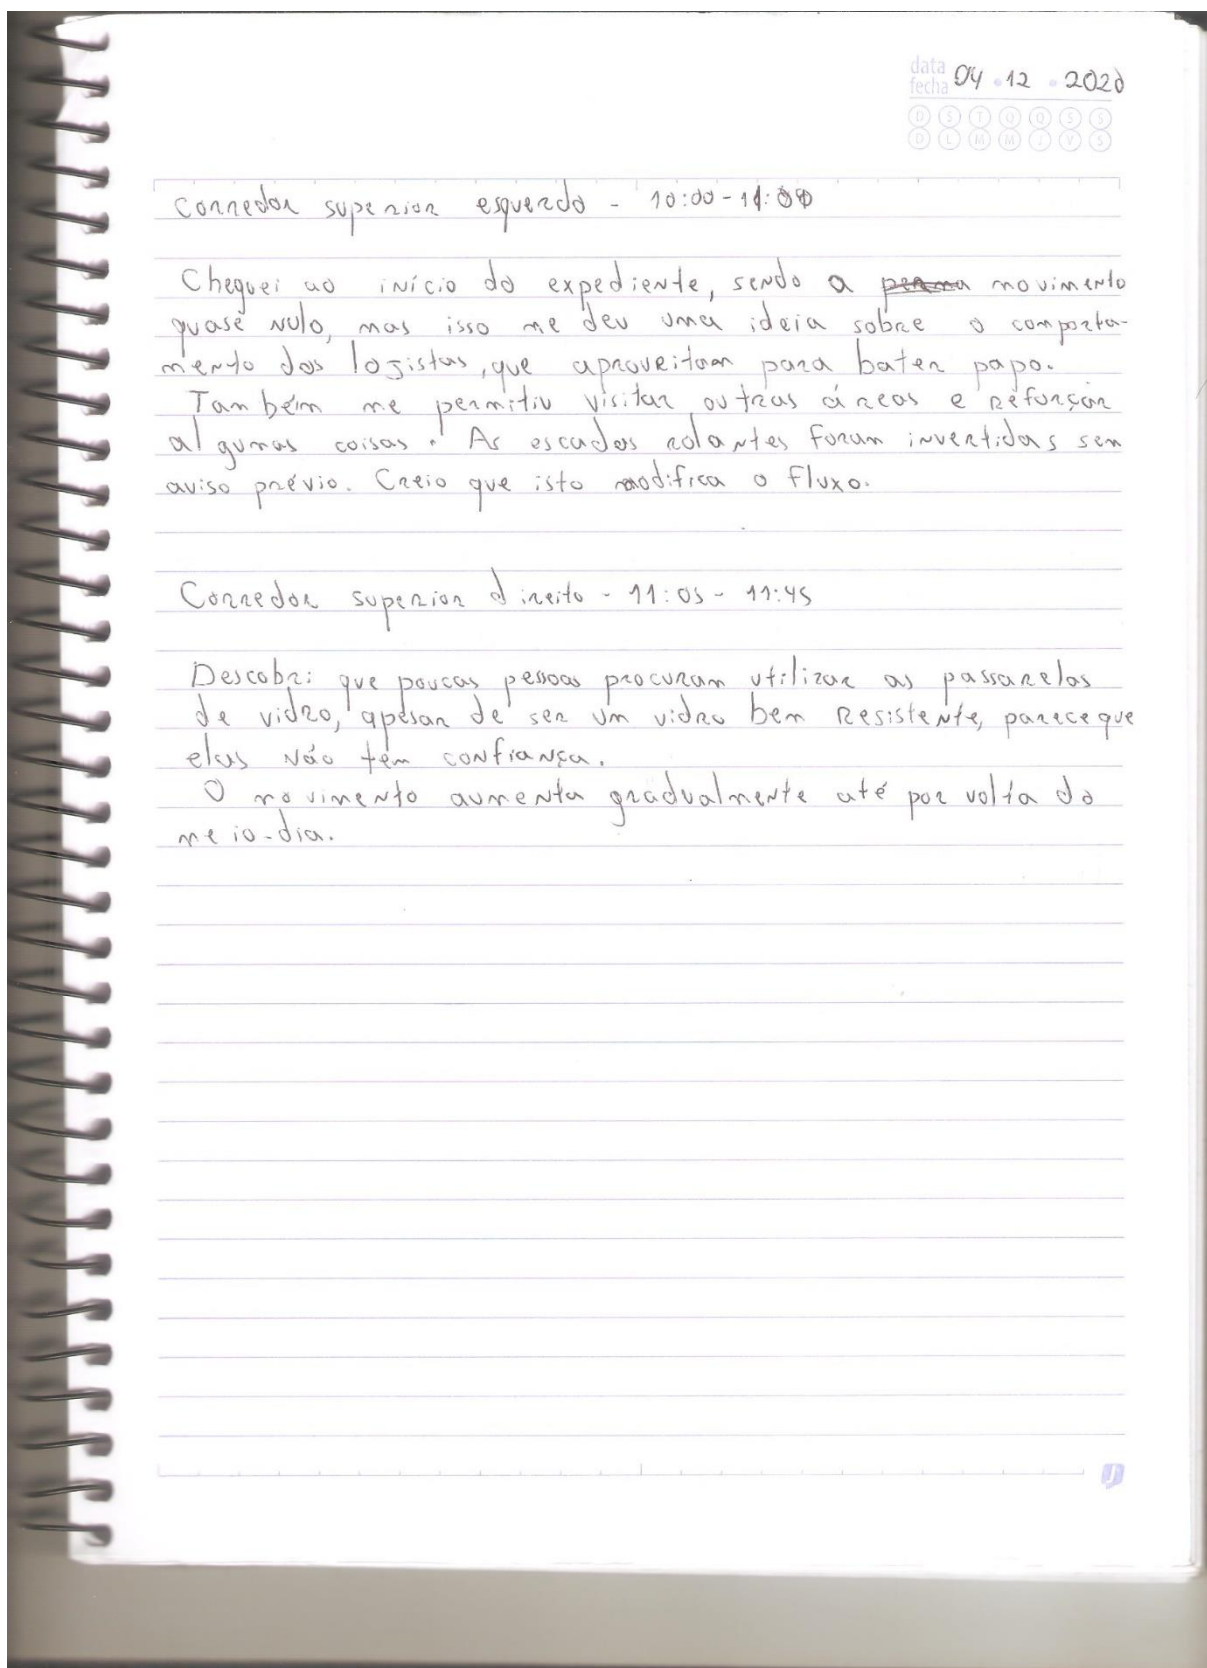 data 04 . 12 . 2020
fecha
D S T Q Q S S
D L M M J V S
Corredor superior esquerdo - 10:00 - 11:00
Cheguei ao início do expediente, sendo a movimento
quase nulo, mas isso me deu uma ideia sobre o comporta-
mento dos logistas, que aproveitam para bater papo.
Também me permitiu visitar outras áreas e reforçar
algumas coisas. As escadas rolantes foram invertidas sem
aviso prévio. Creio que isto modifica o fluxo.
Corredor superior direito - 11:05 - 11:45
Descobri que poucas pessoas procuram utilizar as passarelas
de vidro, apesar de ser um vidro bem resistente, parece que
elas não têm confiança.
O movimento aumenta gradualmente até por volta do
meio-dia.